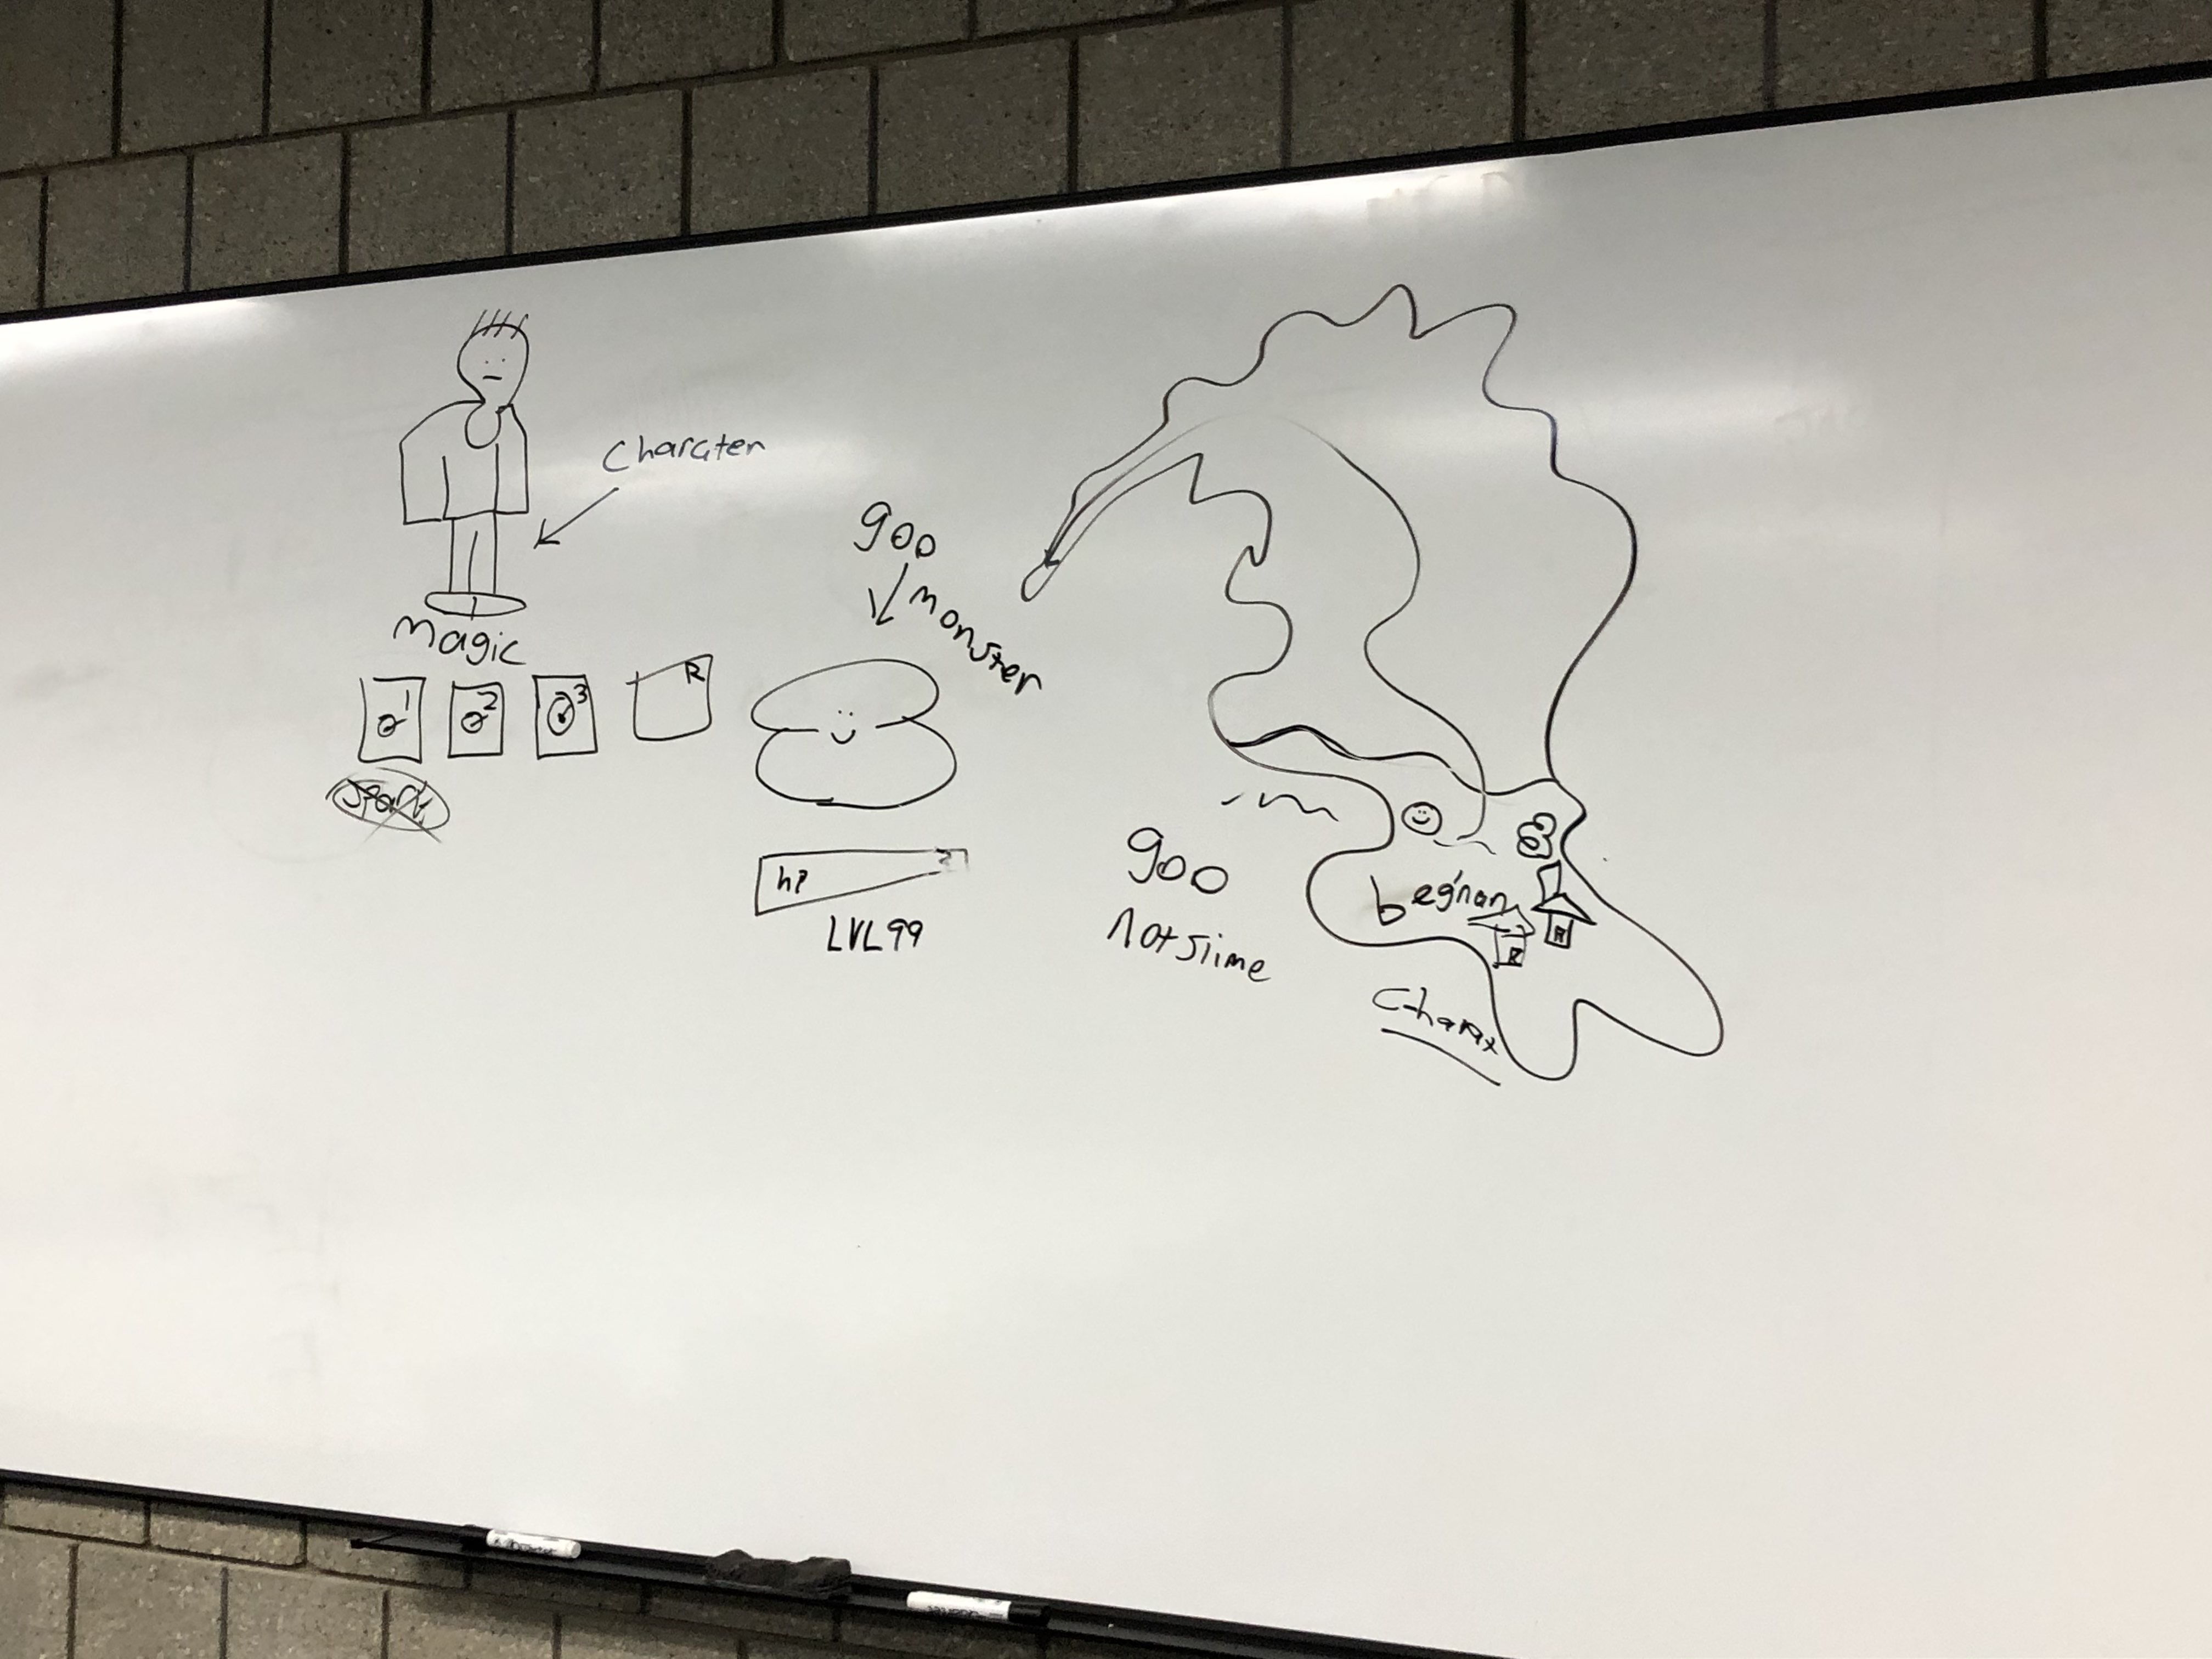 Charcter
magic
1
2
3
R
goo
monster
hp
LVL99
goo
not slime
begnan
Charax